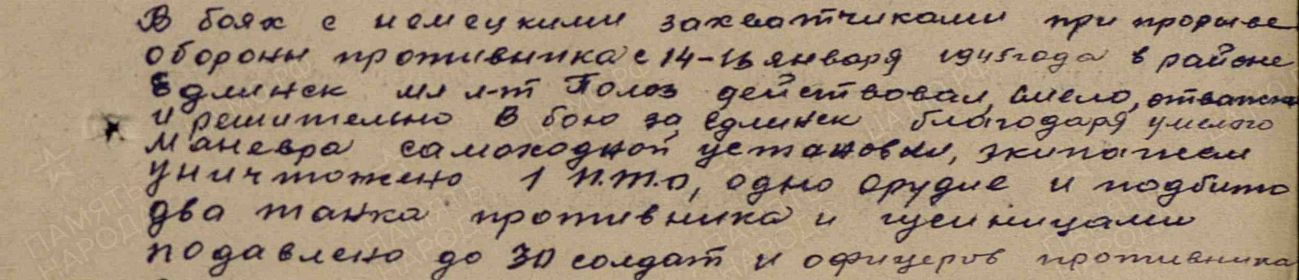 В боях с немецкими захватчиками при прорыве
обороны противника с 14-16 января 1945 года в районе
Едлинск мл л-т Полоз действовал, смело, отважно
и решительно В бою за Едлинск благодаря умелого
маневра самоходной установки, экипажем
уничтожено 1 П.Т.О, одно орудие и подбито
два танка противника и гусиницами
подавлено до 30 солдат и офицеров противника